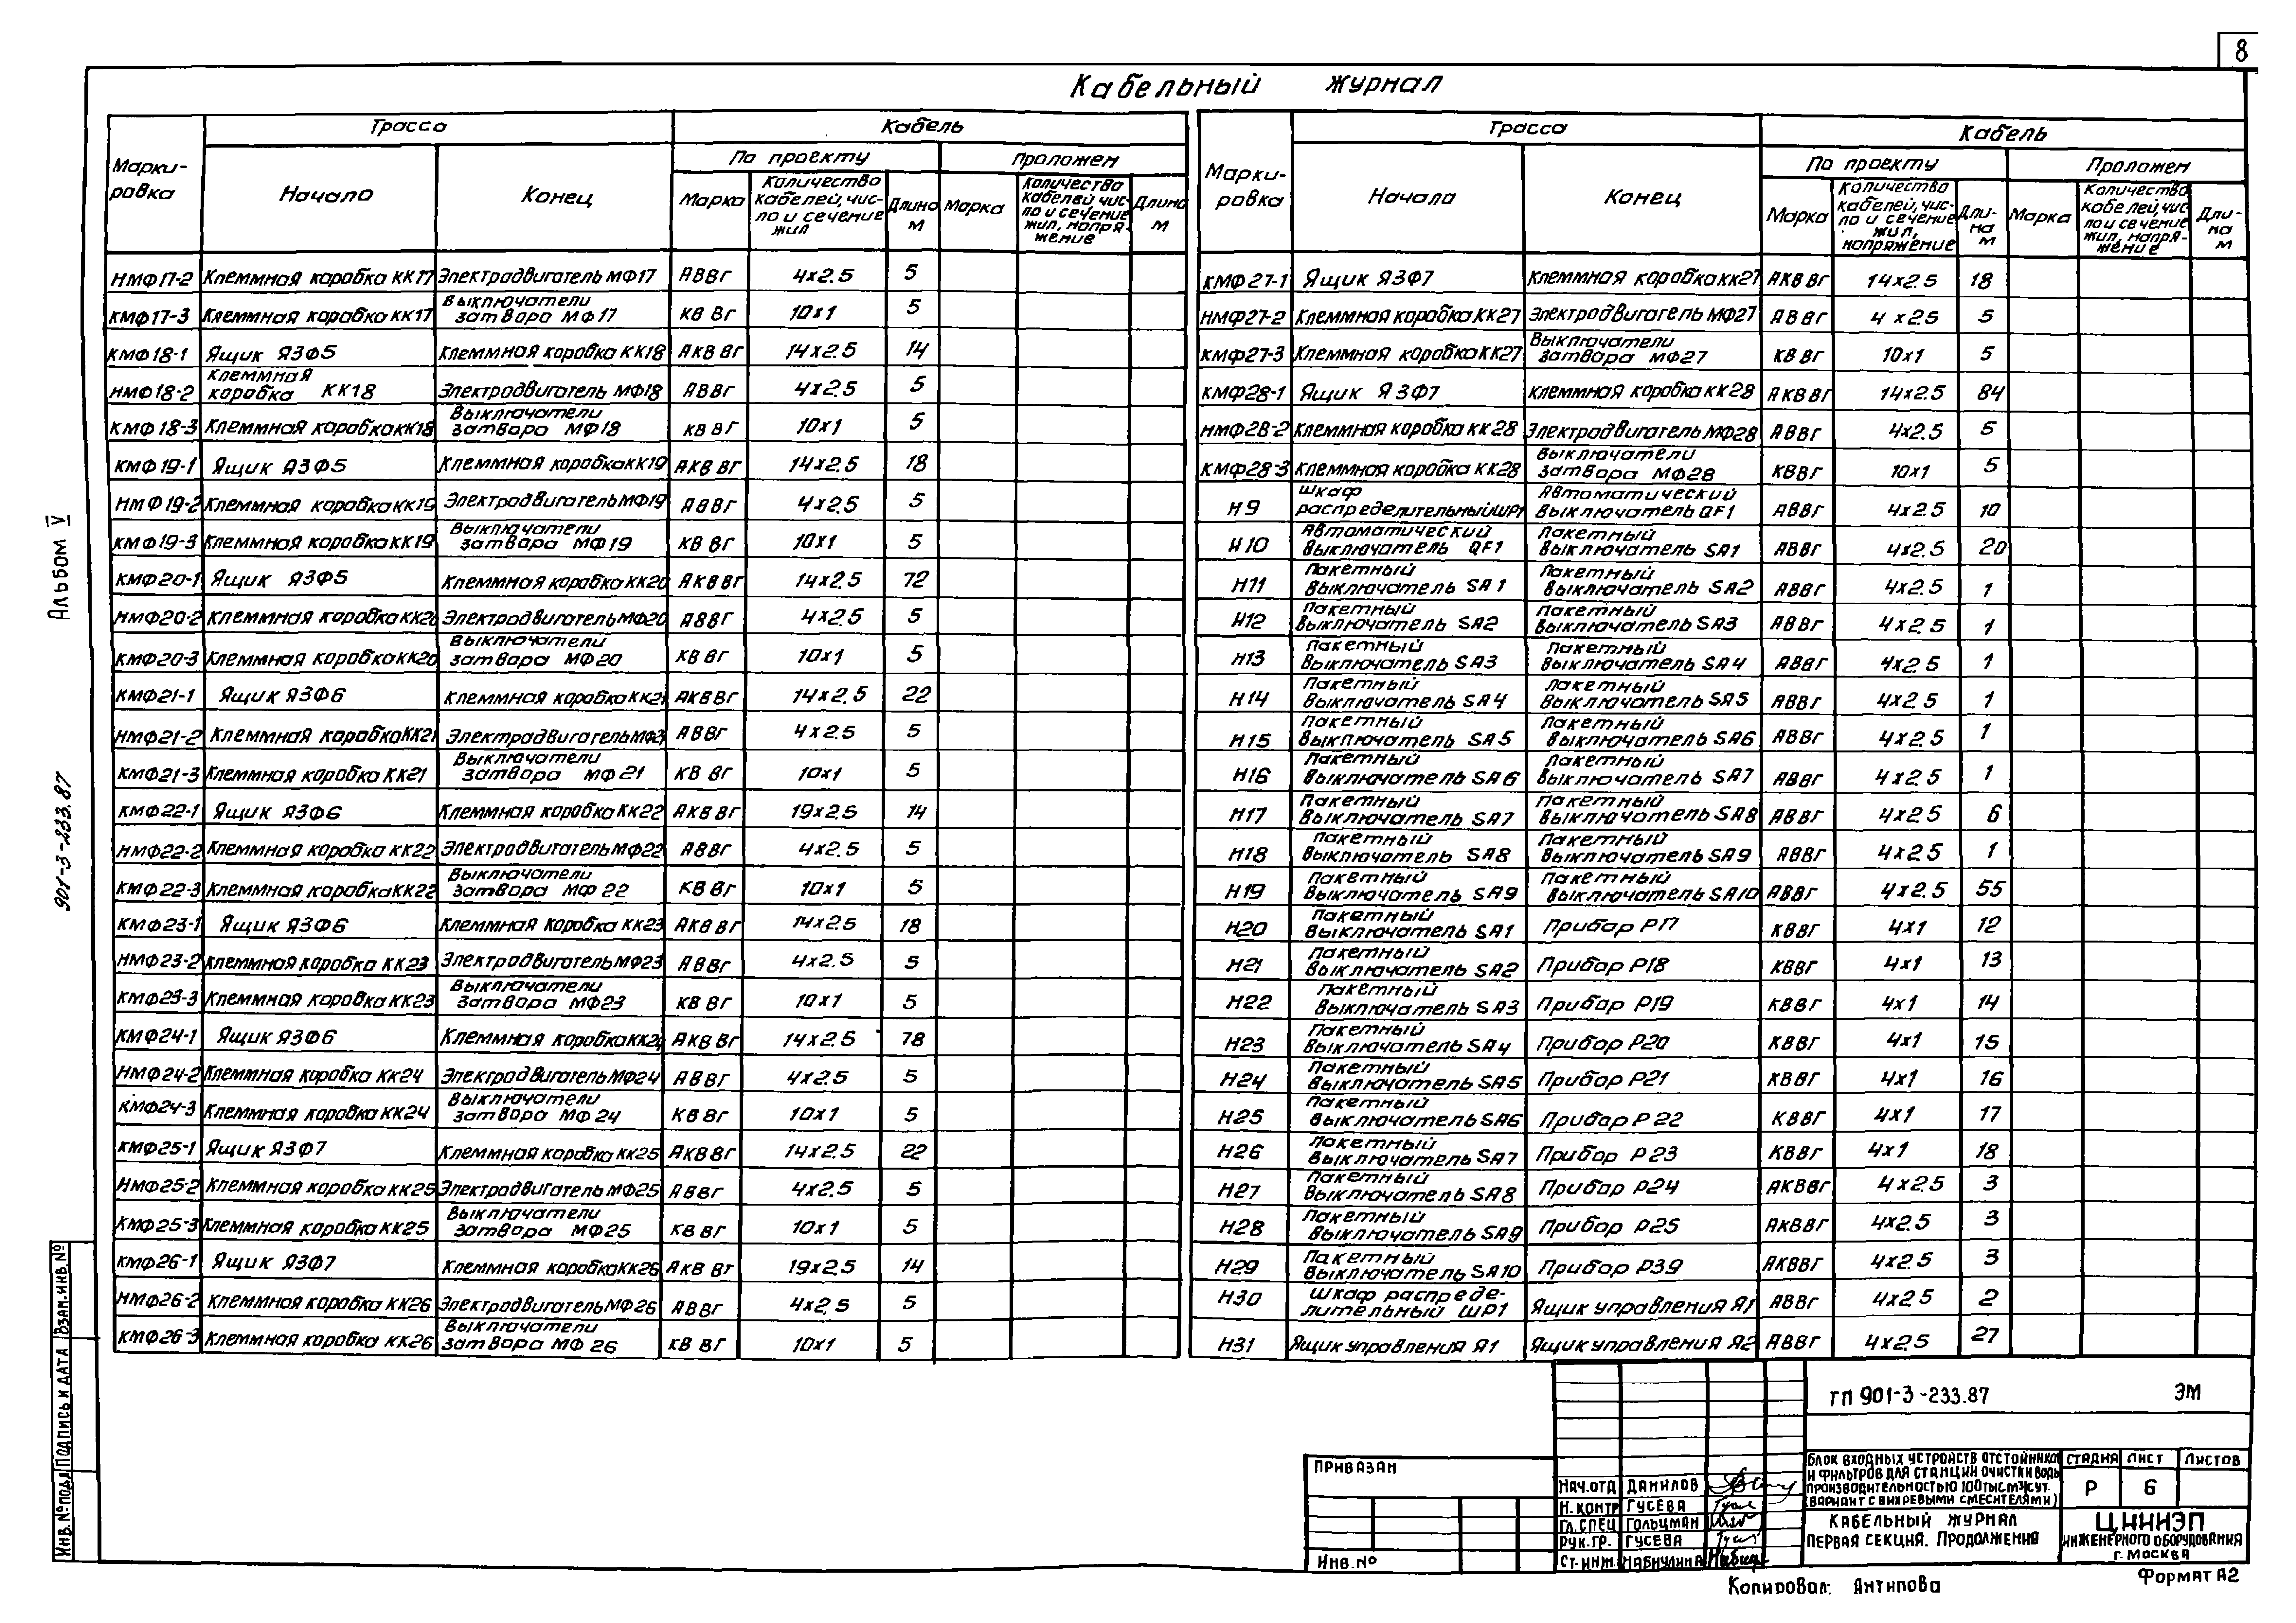 8
Кабельный журнал
Марки-
ровка
Трасса
Кабель
Начало
Конец
По проекту
Проложен
Марка
Количество кабелей, число и сечение жил
Длина м
Марка
Количество кабелей, число и сечение жил, напряжение
Длина м
НМФ17-2 Клеммная коробка КК17 Электродвигатель МФ17 АВВГ 4х2.5 5
КМФ17-3 Клеммная коробка КК17 Выключатели затвора МФ17 КВВГ 10х1 5
КМФ18-1 Ящик ЯЗФ5 Клеммная коробка КК18 АКВВГ 14х2.5 14
НМФ18-2 Клеммная коробка КК18 Электродвигатель МФ18 АВВГ 4х2.5 5
КМФ18-3 Клеммная коробка КК18 Выключатели затвора МФ18 КВВГ 10х1 5
КМФ19-1 Ящик ЯЗФ5 Клеммная коробка КК19 АКВВГ 14х2.5 18
НМФ19-2 Клеммная коробка КК19 Электродвигатель МФ19 АВВГ 4х2.5 5
КМФ19-3 Клеммная коробка КК19 Выключатели затвора МФ19 КВВГ 10х1 5
КМФ20-1 Ящик ЯЗФ5 Клеммная коробка КК20 АКВВГ 14х2.5 72
НМФ20-2 Клеммная коробка КК20 Электродвигатель МФ20 АВВГ 4х2.5 5
КМФ20-3 Клеммная коробка КК20 Выключатели затвора МФ20 КВВГ 10х1 5
КМФ21-1 Ящик ЯЗФ6 Клеммная коробка КК21 АКВВГ 14х2.5 22
НМФ21-2 Клеммная коробка КК21 Электродвигатель МФ21 АВВГ 4х2.5 5
КМФ21-3 Клеммная коробка КК21 Выключатели затвора МФ21 КВВГ 10х1 5
КМФ22-1 Ящик ЯЗФ6 Клеммная коробка КК22 АКВВГ 19х2.5 14
НМФ22-2 Клеммная коробка КК22 Электродвигатель МФ22 АВВГ 4х2.5 5
КМФ22-3 Клеммная коробка КК22 Выключатели затвора МФ22 КВВГ 10х1 5
КМФ23-1 Ящик ЯЗФ6 Клеммная коробка КК23 АКВВГ 14х2.5 18
НМФ23-2 Клеммная коробка КК23 Электродвигатель МФ23 АВВГ 4х2.5 5
КМФ23-3 Клеммная коробка КК23 Выключатели затвора МФ23 КВВГ 10х1 5
КМФ24-1 Ящик ЯЗФ6 Клеммная коробка КК24 АКВВГ 14х2.5 78
НМФ24-2 Клеммная коробка КК24 Электродвигатель МФ24 АВВГ 4х2.5 5
КМФ24-3 Клеммная коробка КК24 Выключатели затвора МФ24 КВВГ 10х1 5
КМФ25-1 Ящик ЯЗФ7 Клеммная коробка КК25 АКВВГ 14х2.5 22
НМФ25-2 Клеммная коробка КК25 Электродвигатель МФ25 АВВГ 4х2.5 5
КМФ25-3 Клеммная коробка КК25 Выключатели затвора МФ25 КВВГ 10х1 5
КМФ26-1 Ящик ЯЗФ7 Клеммная коробка КК26 АКВВГ 19х2.5 14
НМФ26-2 Клеммная коробка КК26 Электродвигатель МФ26 АВВГ 4х2.5 5
КМФ26-3 Клеммная коробка КК26 Выключатели затвора МФ26 КВВГ 10х1 5
Марки-
ровка
Трасса
Кабель
Начало
Конец
По проекту
Проложен
Марка
Количество кабелей, число и сечение жил, напряжение
Длина м
Марка
Количество кабелей, число и сечение жил, напряжение
Длина м
КМФ27-1 Ящик ЯЗФ7 Клеммная коробка КК27 АКВВГ 14х2.5 18
НМФ27-2 Клеммная коробка КК27 Электродвигатель МФ27 АВВГ 4х2.5 5
КМФ27-3 Клеммная коробка КК27 Выключатели затвора МФ27 КВВГ 10х1 5
КМФ28-1 Ящик ЯЗФ7 Клеммная коробка КК28 АКВВГ 14х2.5 84
НМФ28-2 Клеммная коробка КК28 Электродвигатель МФ28 АВВГ 4х2.5 5
КМФ28-3 Клеммная коробка КК28 Выключатели затвора МФ28 КВВГ 10х1 5
Н9 Шкаф распределительный ШР1 Автоматический выключатель QF1 АВВГ 4х2.5 10
Н10 Автоматический выключатель QF1 Пакетный выключатель SA1 АВВГ 4х2.5 20
Н11 Пакетный выключатель SA1 Пакетный выключатель SA2 АВВГ 4х2.5 1
Н12 Пакетный выключатель SA2 Пакетный выключатель SA3 АВВГ 4х2.5 1
Н13 Пакетный выключатель SA3 Пакетный выключатель SA4 АВВГ 4х2.5 1
Н14 Пакетный выключатель SA4 Пакетный выключатель SA5 АВВГ 4х2.5 1
Н15 Пакетный выключатель SA5 Пакетный выключатель SA6 АВВГ 4х2.5 1
Н16 Пакетный выключатель SA6 Пакетный выключатель SA7 АВВГ 4х2.5 1
Н17 Пакетный выключатель SA7 Пакетный выключатель SA8 АВВГ 4х2.5 6
Н18 Пакетный выключатель SA8 Пакетный выключатель SA9 АВВГ 4х2.5 1
Н19 Пакетный выключатель SA9 Пакетный выключатель SA10 АВВГ 4х2.5 55
Н20 Пакетный выключатель SA1 Прибор Р17 КВВГ 4х1 12
Н21 Пакетный выключатель SA2 Прибор Р18 КВВГ 4х1 13
Н22 Пакетный выключатель SA3 Прибор Р19 КВВГ 4х1 14
Н23 Пакетный выключатель SA4 Прибор Р20 КВВГ 4х1 15
Н24 Пакетный выключатель SA5 Прибор Р21 КВВГ 4х1 16
Н25 Пакетный выключатель SA6 Прибор Р22 КВВГ 4х1 17
Н26 Пакетный выключатель SA7 Прибор Р23 КВВГ 4х1 18
Н27 Пакетный выключатель SA8 Прибор Р24 АКВВГ 4х2.5 3
Н28 Пакетный выключатель SA9 Прибор Р25 АКВВГ 4х2.5 3
Н29 Пакетный выключатель SA10 Прибор Р39 АКВВГ 4х2.5 3
Н30 Шкаф распределительный ШР1 Ящик управления Я1 АВВГ 4х2.5 2
Н31 Ящик управления Я1 Ящик управления Я2 АВВГ 4х2.5 27
Альбом V
901-3-233.87
Инв.№подл. Подпись и дата Взам.инв.№
Привязан
Инв.№
Нач.отд Данилов
Н.контр Гусева
Гл.спец Гольцман
Рук.гр. Гусева
Ст.инж. Набиулина
ТП 901-3-233.87 ЭМ
Блок входных устройств отстойников
и фильтров для станции очистки воды
производительностью 100тыс.м3/сут.
(вариант с вихревыми смесителями)
Стадия Лист Листов
Р 6
Кабельный журнал
Первая секция. Продолжения
ЦНИИЭП
инженерного оборудования
г. Москва
Копировал: Антипова
Формат А2